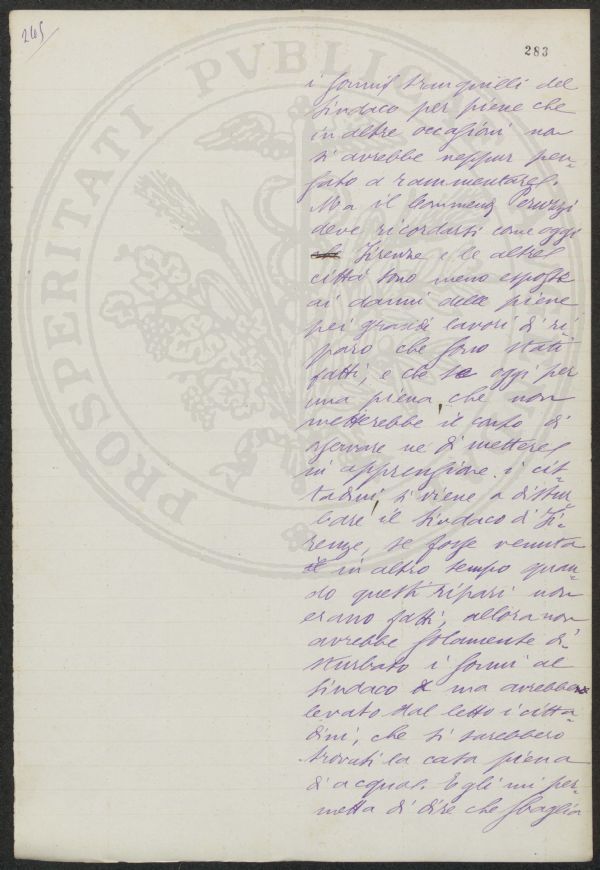 245
283
PROSPERITATI PVBLICAE
i sonni tranquilli del
Sindaco per piene che
in altre occasioni non
si avrebbe neppur pen-
sato a rammentarsi.
Ma il Commend. Peruzzi
deve ricordarsi come oggi
che Firenze e le altre
città sono meno esposte
ai danni delle piene
pei grandi lavori di ri-
paro che sono stati
fatti, e che se oggi per
una piena, che non
metterebbe il conto di
osservare ne di mettere
in apprensione i cit-
tadini, si viene a distur-
bare il Sindaco di Fi-
renze, se fosse venuta
in altro tempo quan-
do questi ripari non
erano fatti, allora non
avrebbe solamente di-
sturbato i sonni al
Sindaco ma avrebbe
levato dal letto i citta-
dini, che si sarebbero
trovati la casa piena
di acqua. Egli mi per-
metta di dire che sbaglia